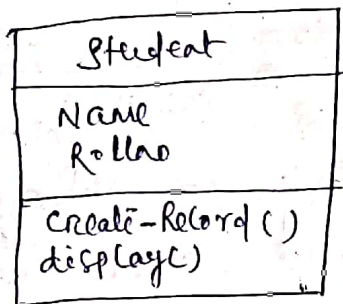 Student
Name
Rollno
Create-Record()
display()